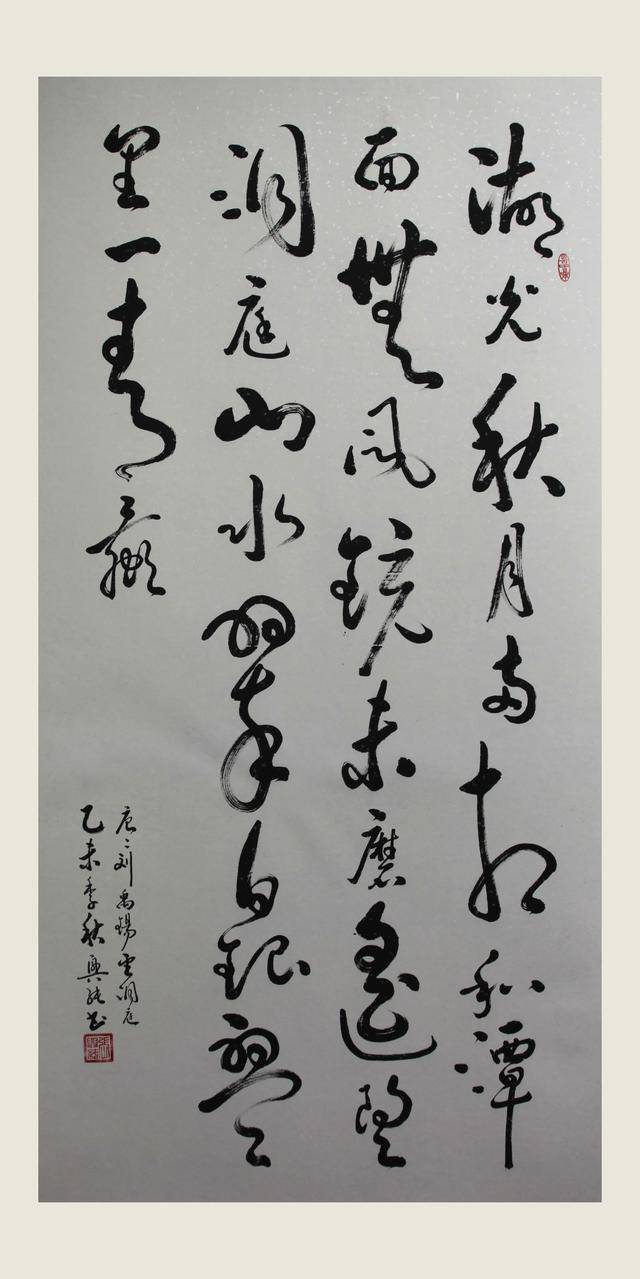 湖光秋月两相和潭
面無风镜未磨遥望
洞庭山水翠白银盤
里一青螺
唐刘禹锡望洞庭
乙未季秋興书